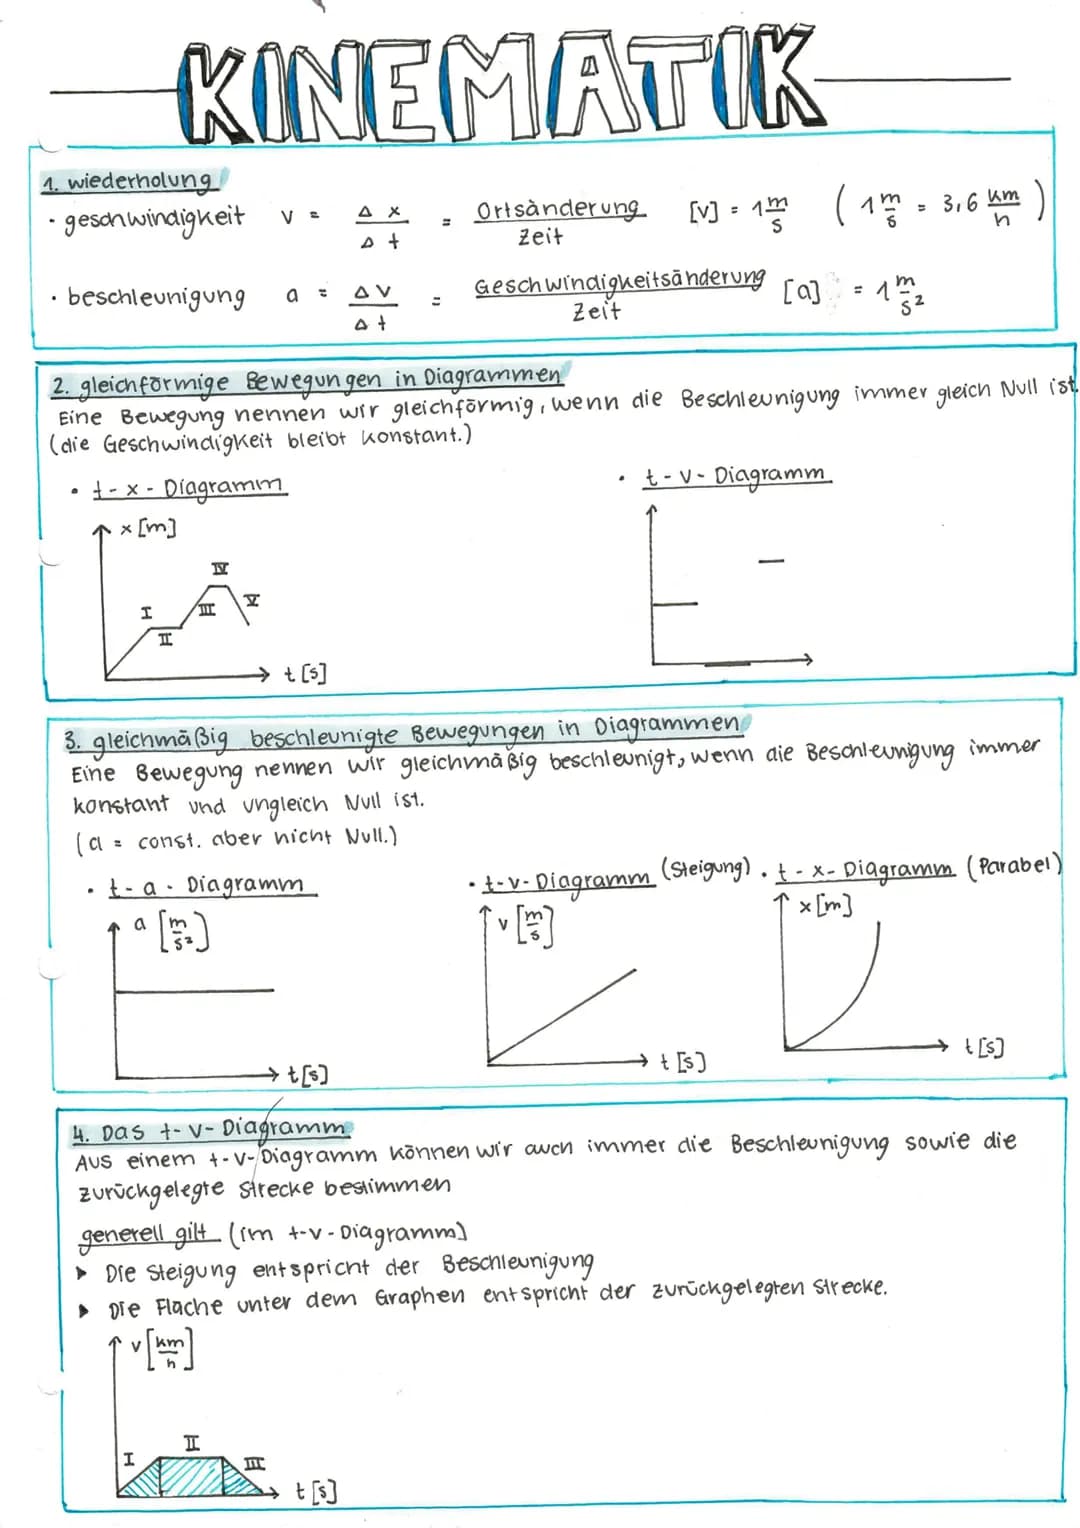 KINEMATIK
1. wiederholung
· geschwindigkeit v = Δx/Δt = Ortsänderung/Zeit [v] = 1 m/s (1 m/s = 3,6 km/h)
· beschleunigung a = Δv/Δt = Geschwindigkeitsänderung/Zeit [a] = 1 m/s²
2. gleichförmige Bewegungen in Diagrammen
Eine Bewegung nennen wir gleichförmig, wenn die Beschleunigung immer gleich Null ist.
(die Geschwindigkeit bleibt konstant.)
· t-x-Diagramm · t-v-Diagramm
x [m]
IV
I III V
II
t [s]
3. gleichmäßig beschleunigte Bewegungen in Diagrammen
Eine Bewegung nennen wir gleichmäßig beschleunigt, wenn die Beschleunigung immer
konstant und ungleich Null ist.
(a = const. aber nicht Null.)
· t-a-Diagramm · t-v-Diagramm (Steigung) · t-x-Diagramm (Parabel)
a [m/s²] v [m/s] x [m]
t [s] t [s] t [s]
4. Das t-v-Diagramm
Aus einem t-v-Diagramm können wir auch immer die Beschleunigung sowie die
zurückgelegte strecke bestimmen
generell gilt (im t-v-Diagramm)
▸ Die Steigung entspricht der Beschleunigung
▸ Die Fläche unter dem Graphen entspricht der zurückgelegten Strecke.
v [km/h]
I II III
t [s]